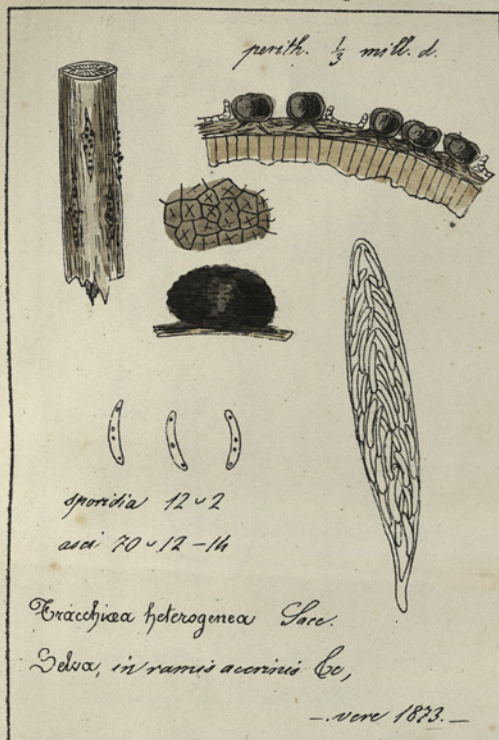 perith. 1/3 mill. d.
sporidia 12 ᴗ 2
asci 70 ᴗ 12 – 14
Fracchiæa heterogenea Sacc.
Selva, in ramis acerinis Cc,
–. vere 1873. –